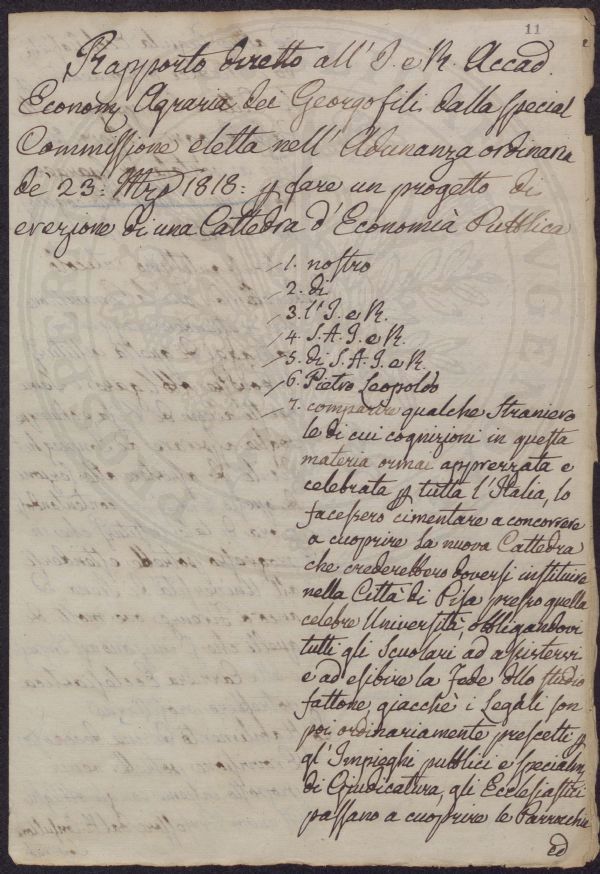 11
Rapporto diretto all' I. e R. Accad.
Econom. Agraria dei Georgofili dalla special
Commissione eletta nell' Adunanza ordinaria
de' 23: Mzo 1818: p fare un progetto di
erezione di una Cattedra d' Economia Pubblica
1. nostro
2. di
3. l' I. e R.
4. S. A. I. e R.
5. di S. A. I. e R.
6. Pietro Leopoldo
7. comparire qualche Straniero
le di cui cognizioni in questa
materia ormai apprezzata e
celebrata p tutta l' Italia, lo
facessero cimentare a concorrere
a cuoprire la nuova Cattedra
che crederebbero doversi instituire
nella Città di Pisa presso quella
celebre Università, obbligandovi
tutti gli Scuolari ad assistervi
e ad esibire la Fede dllo studio
fattone, giacchè i Legali son
poi ordinariamente prescelti p
gl' Impieghi pubblici e specialm.
di Giudicatura, gli Ecclesiastici
passano a cuoprire le Parrocchie
ed